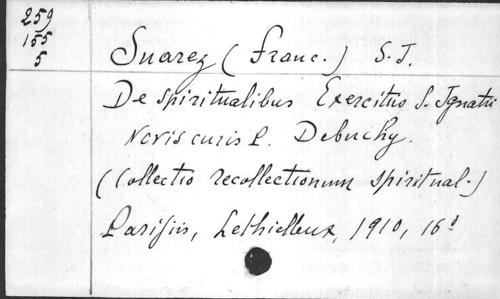 259
155
5
Suarez (Franc.) S. J.
De Spiritualibus Exercitiis S. Ignatii
Novis curis P. Debuchy.
(Collectio recollectionum spiritual.)
Parisiis, Lethielleux, 1910, 16°